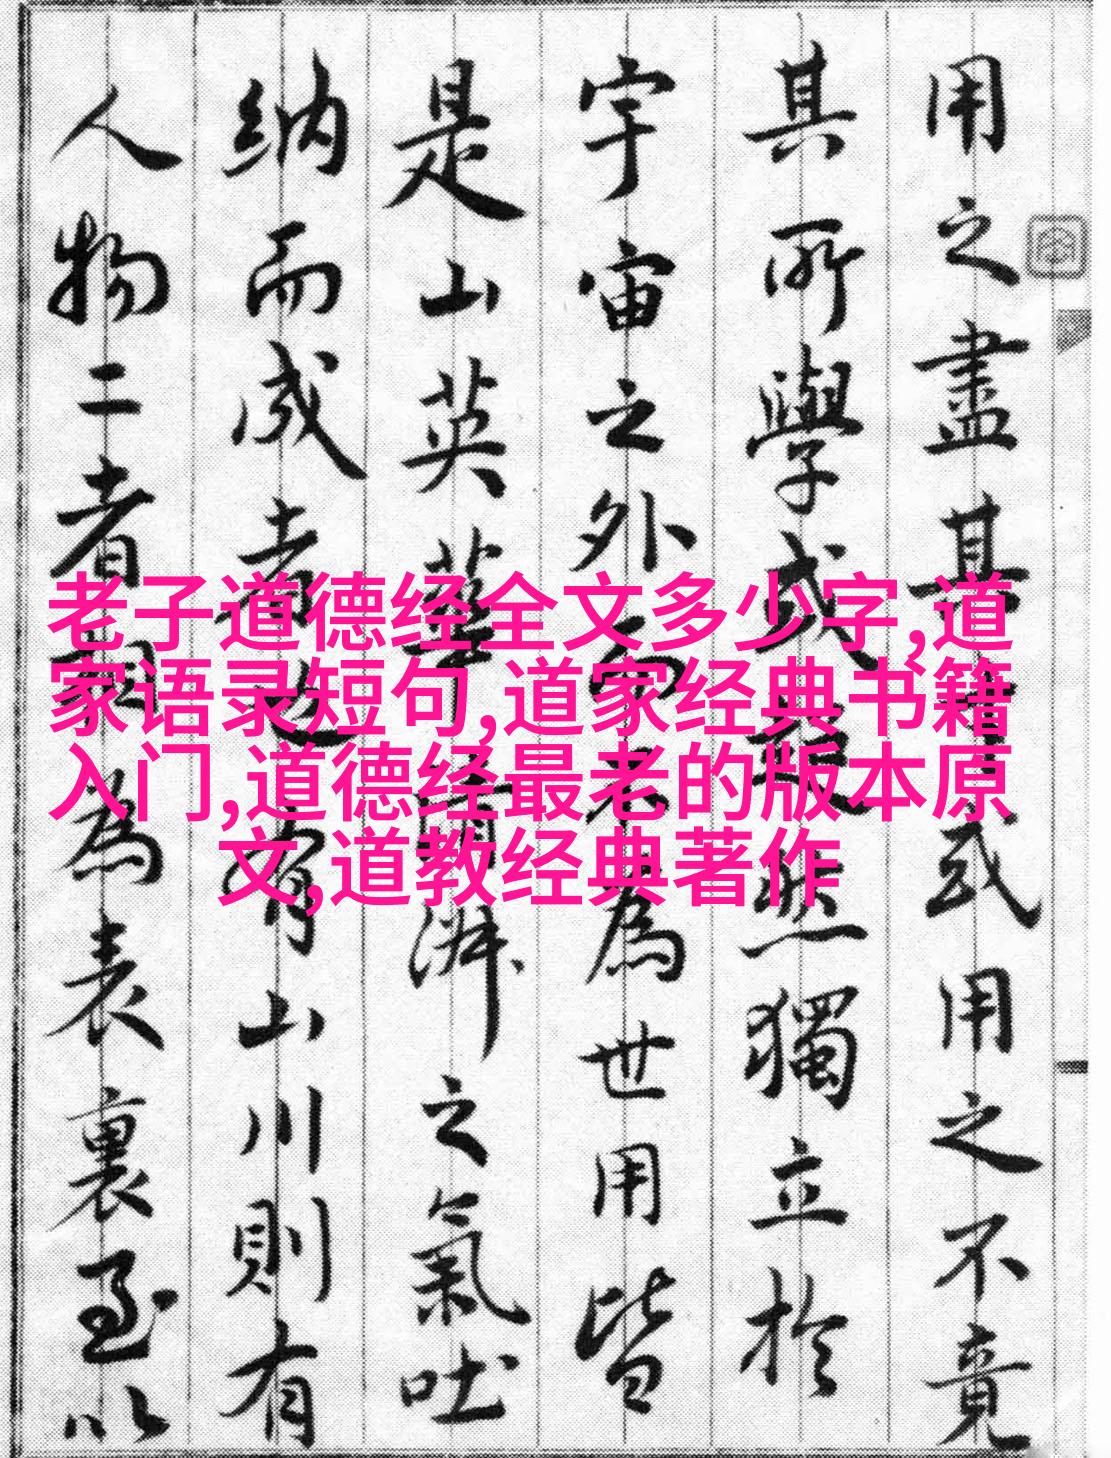 用之盡其才或用之不竟
其所學或最然獨立於
宇宙之外而不為世用皆
是山英華清淋之氣吐
納而成者也有山川則有
人物二者相為表裏至以
老子道德经全文多少字,道
家语录短句,道家经典书籍
入门,道德经最老的版本原
文,道教经典著作